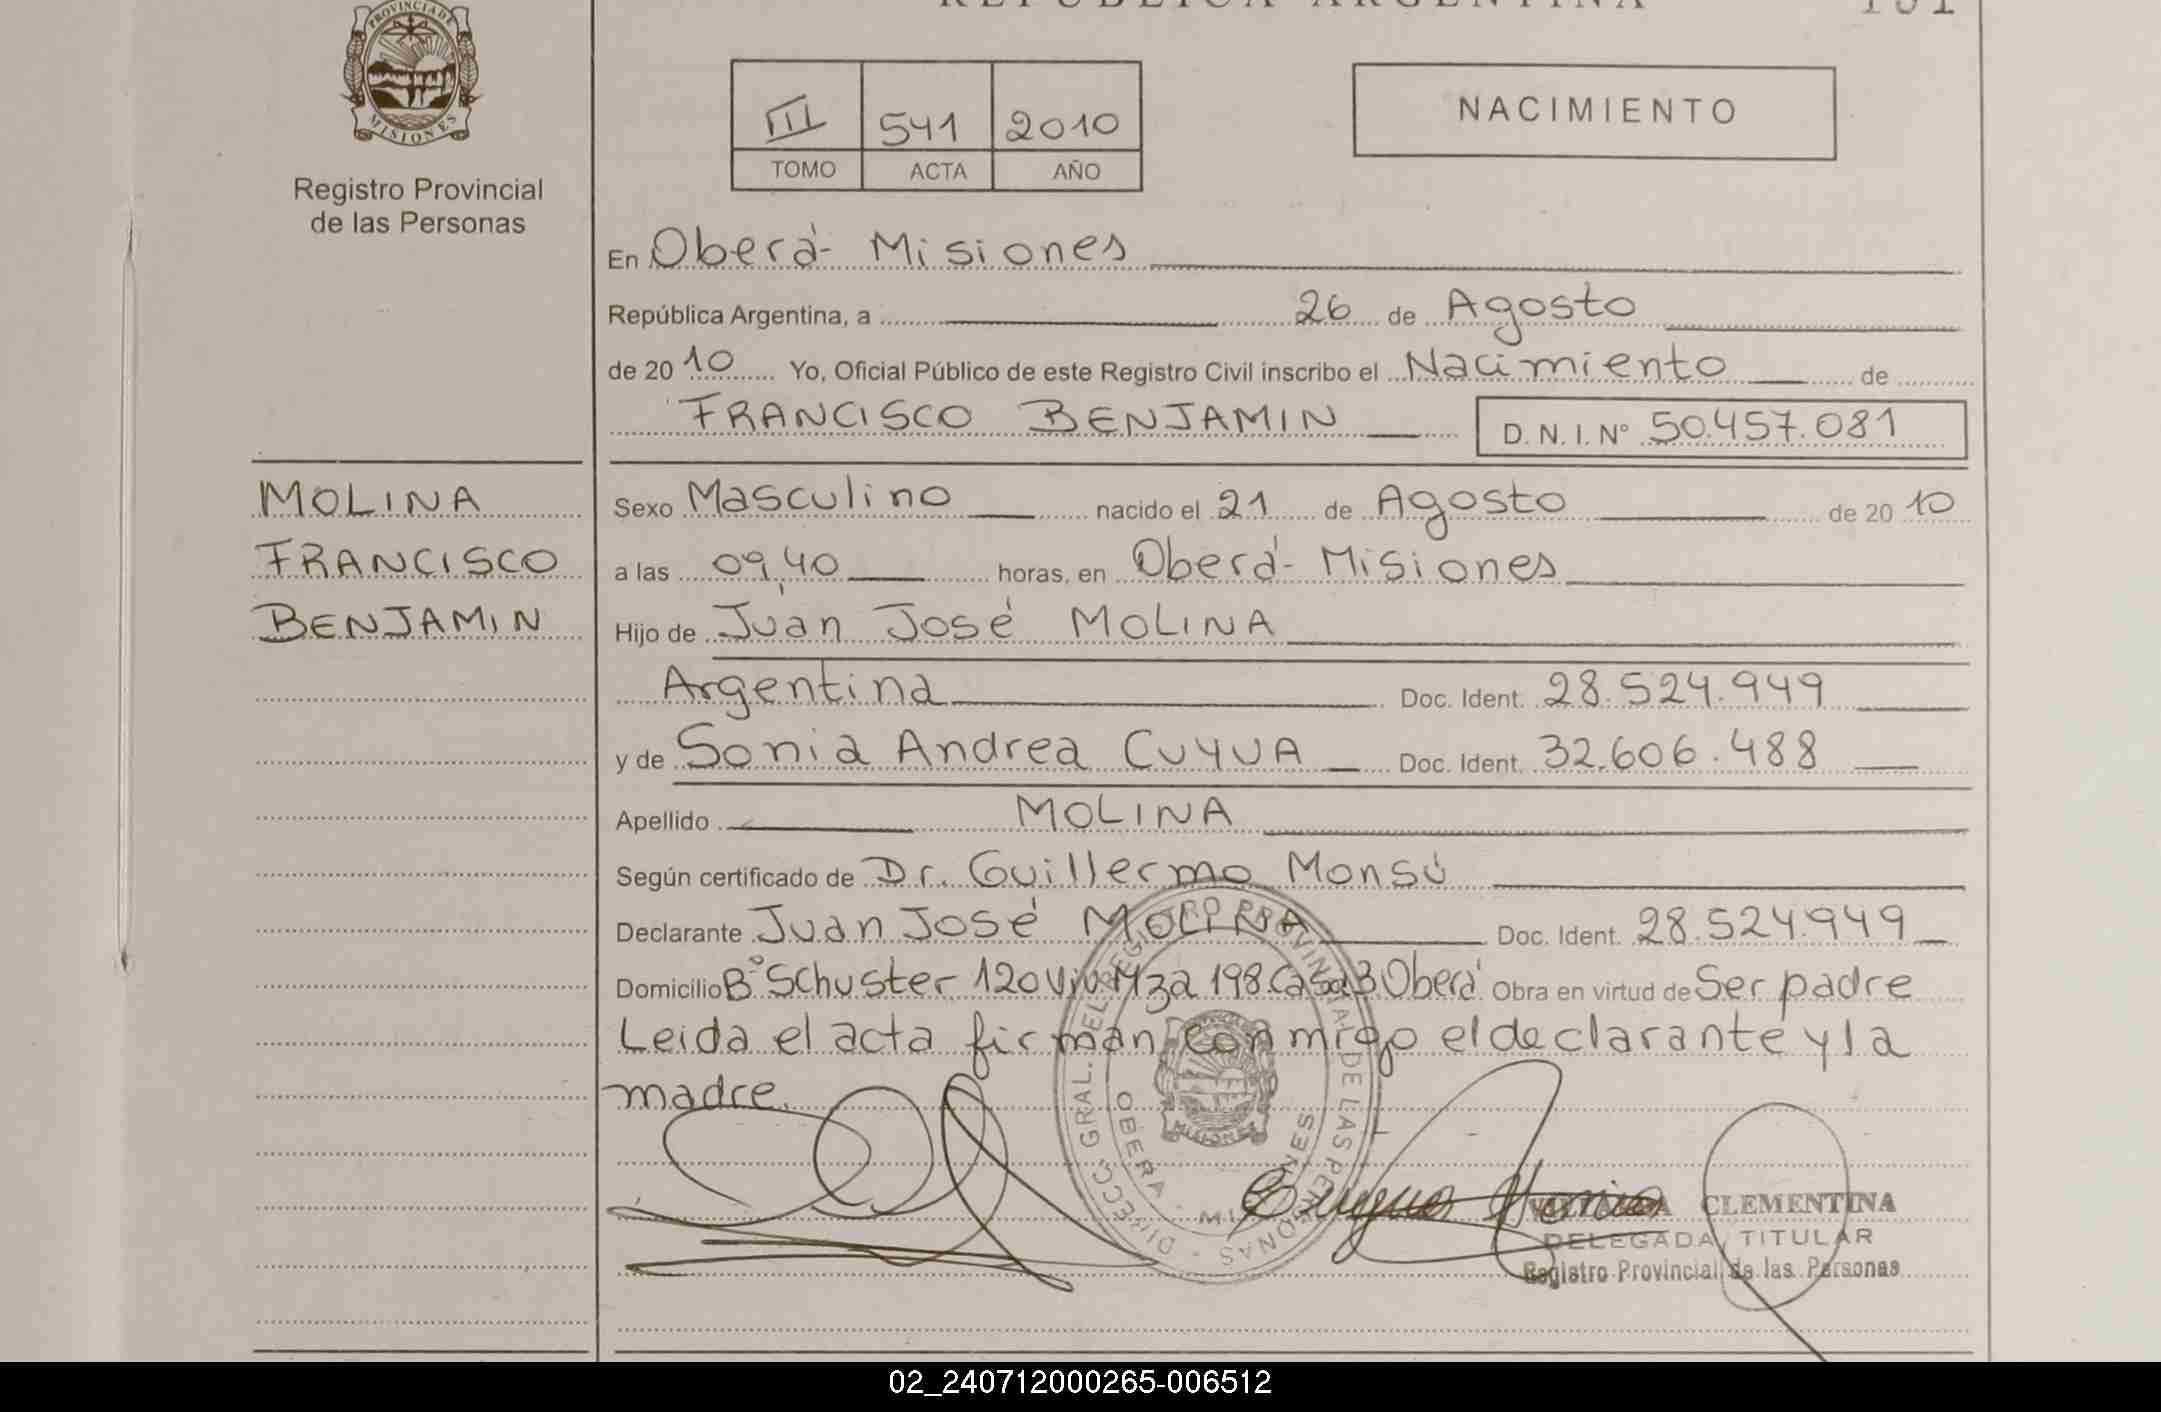 REPUBLICA ARGENTINA
PROVINCIA DE
MISIONES
Registro Provincial
de las Personas
III 541 2010
TOMO ACTA AÑO
NACIMIENTO
En Oberá- Misiones
República Argentina, a 26 de Agosto
de 2010 Yo, Oficial Público de este Registro Civil inscribo el Nacimiento de
FRANCISCO BENJAMIN D. N. I. N° 50.457.081
MOLINA
FRANCISCO
BENJAMIN
Sexo Masculino nacido el 21 de Agosto de 2010
a las 09,40 horas, en Oberá- Misiones
Hijo de Juan José MOLINA
Argentina Doc. Ident. 28.524.949
y de Sonia Andrea CUYUA Doc. Ident. 32.606.488
Apellido MOLINA
Según certificado de Dr. Guillermo Monsú
Declarante Juan José MOLINA Doc. Ident. 28.524.949
Domicilio B° Schuster 120 Viv. Mza 198 Casa 3 Oberá Obra en virtud de Ser padre
Leida el acta firman conmigo el declarante y la
madre.
DIRECC. GRAL. DEL REGISTRO PROVINCIAL DE LAS PERSONAS
OBERA - MISIONES
MISIONES
CLEMENTINA
DELEGADA TITULAR
Registro Provincial de las Personas
02_240712000265-006512